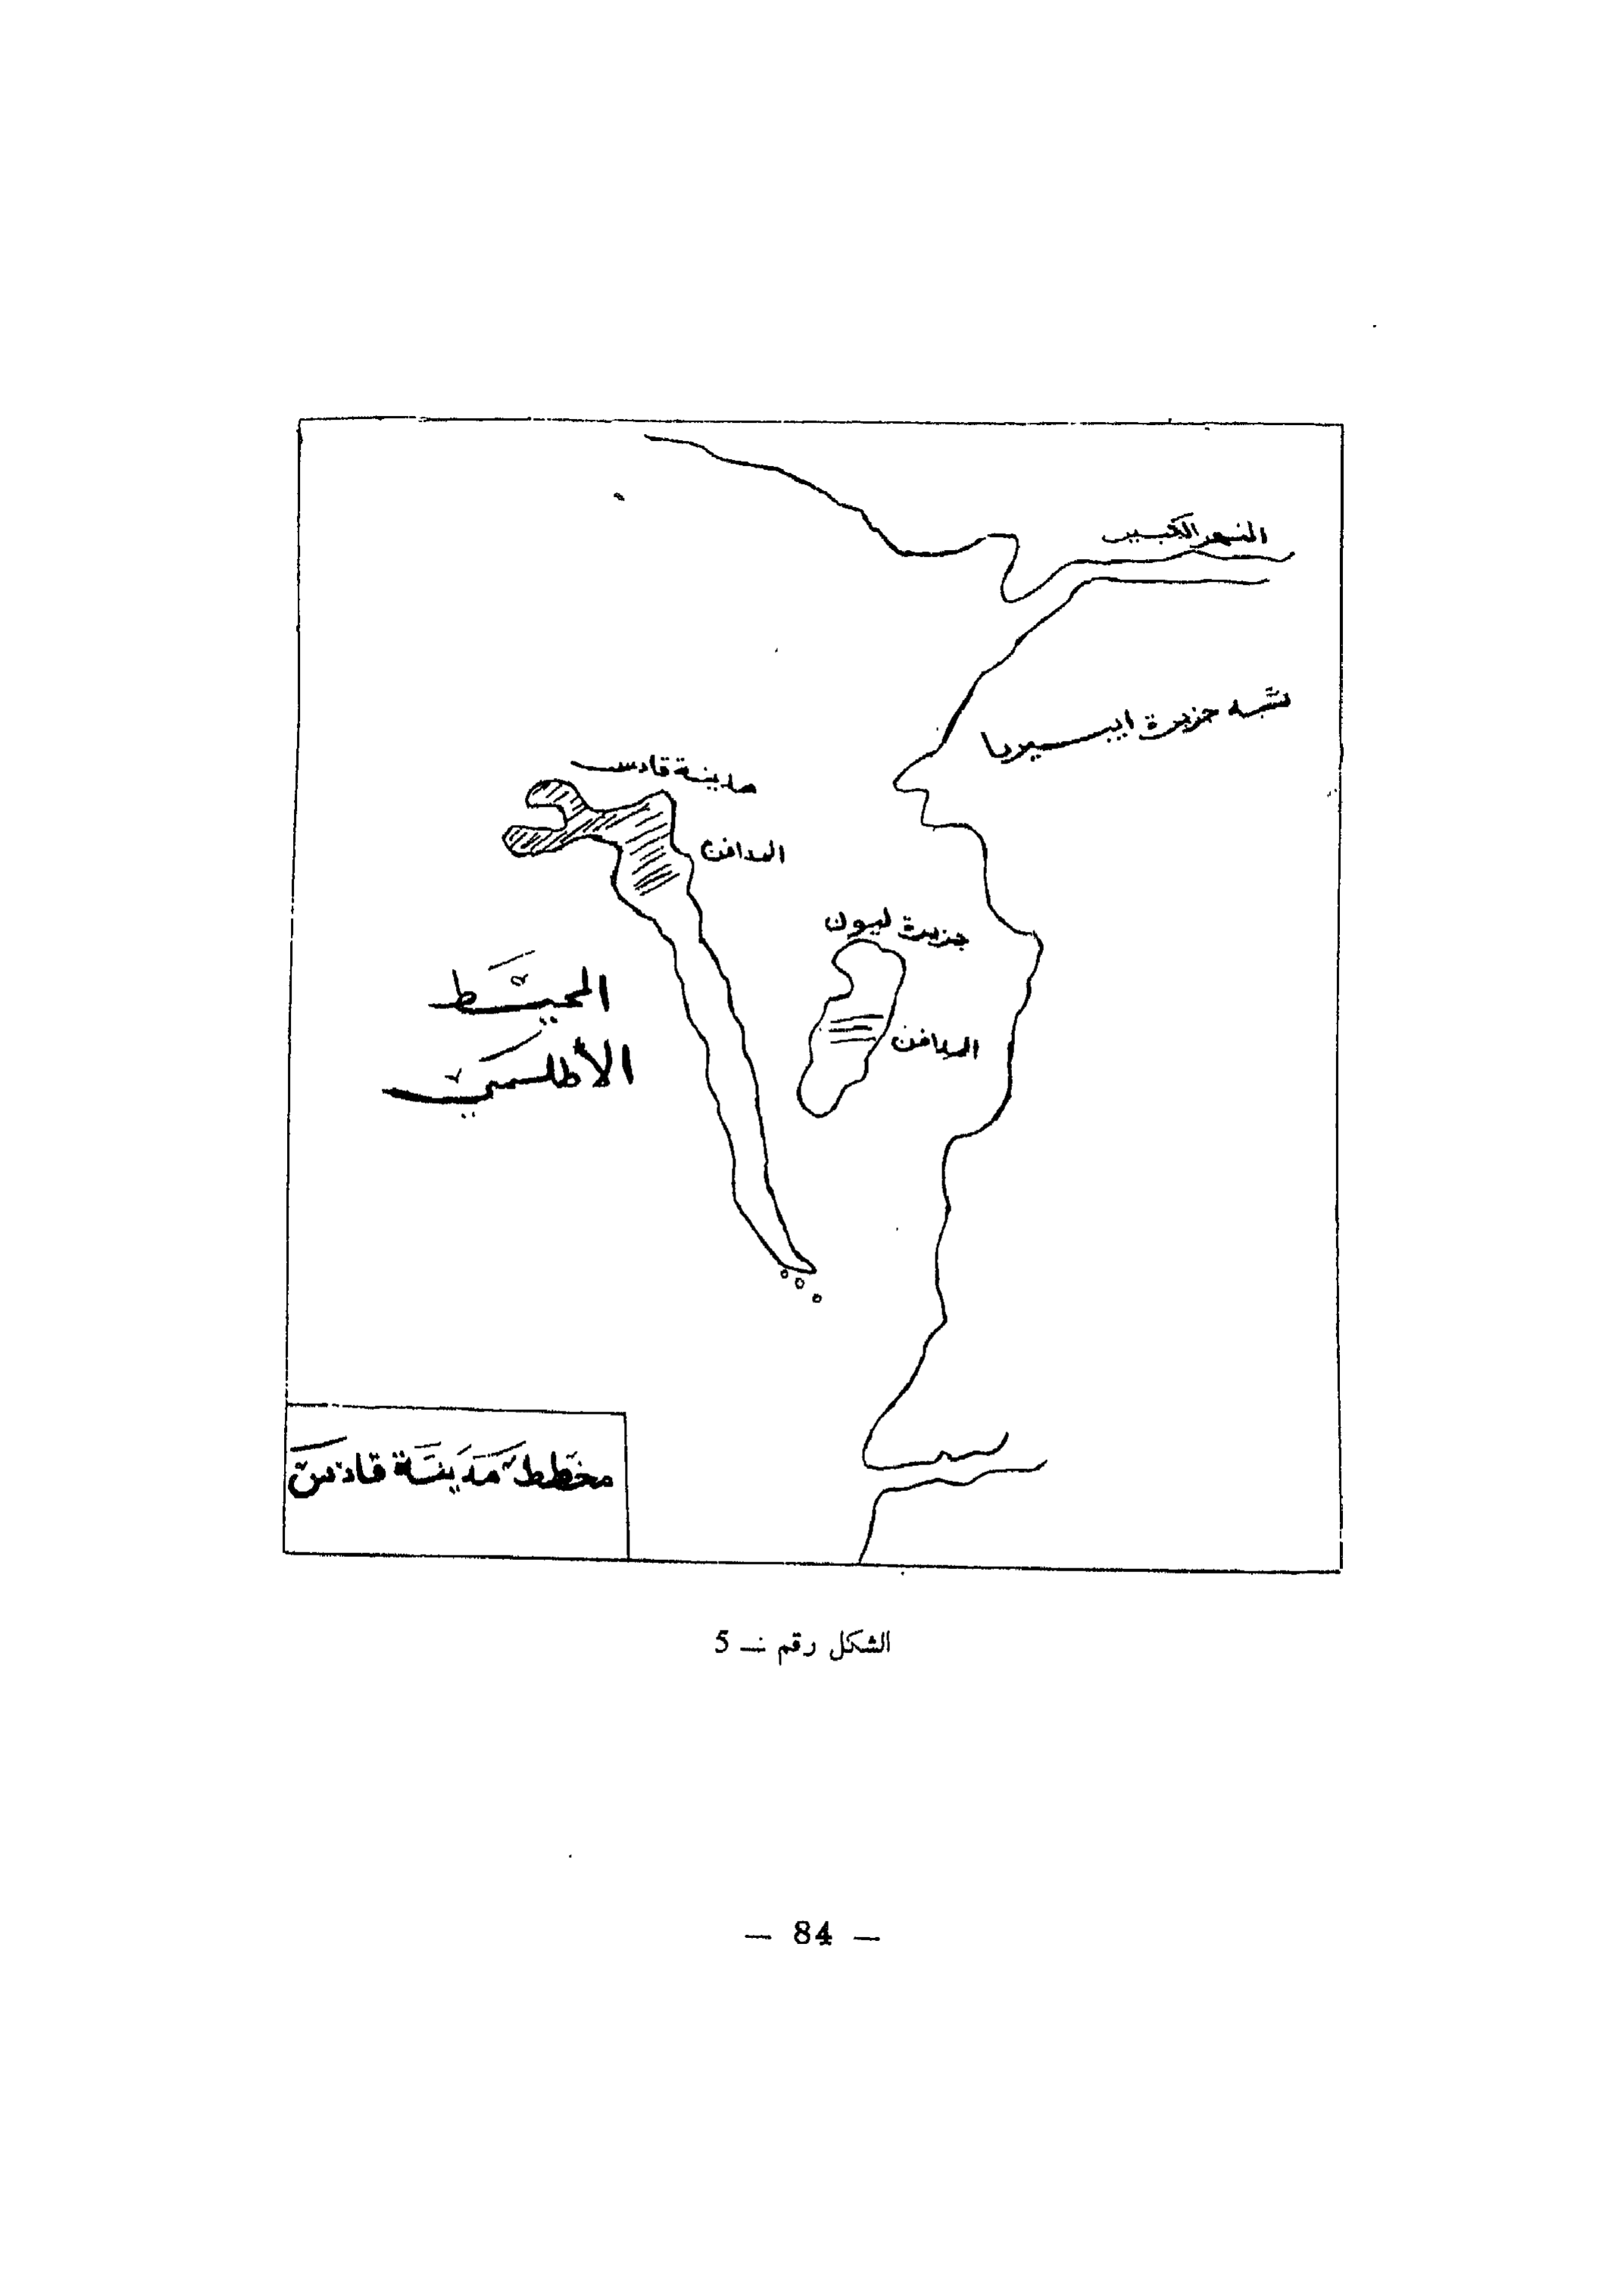 النهر الكبير
شبه جزيرة ايبيريا
مدينة قادس
المدافن
جزيرة ليون
المدافن
المحيط
الأطلسي
مخطط مدينة قادس
الشكل رقم : — 5
— 84 —